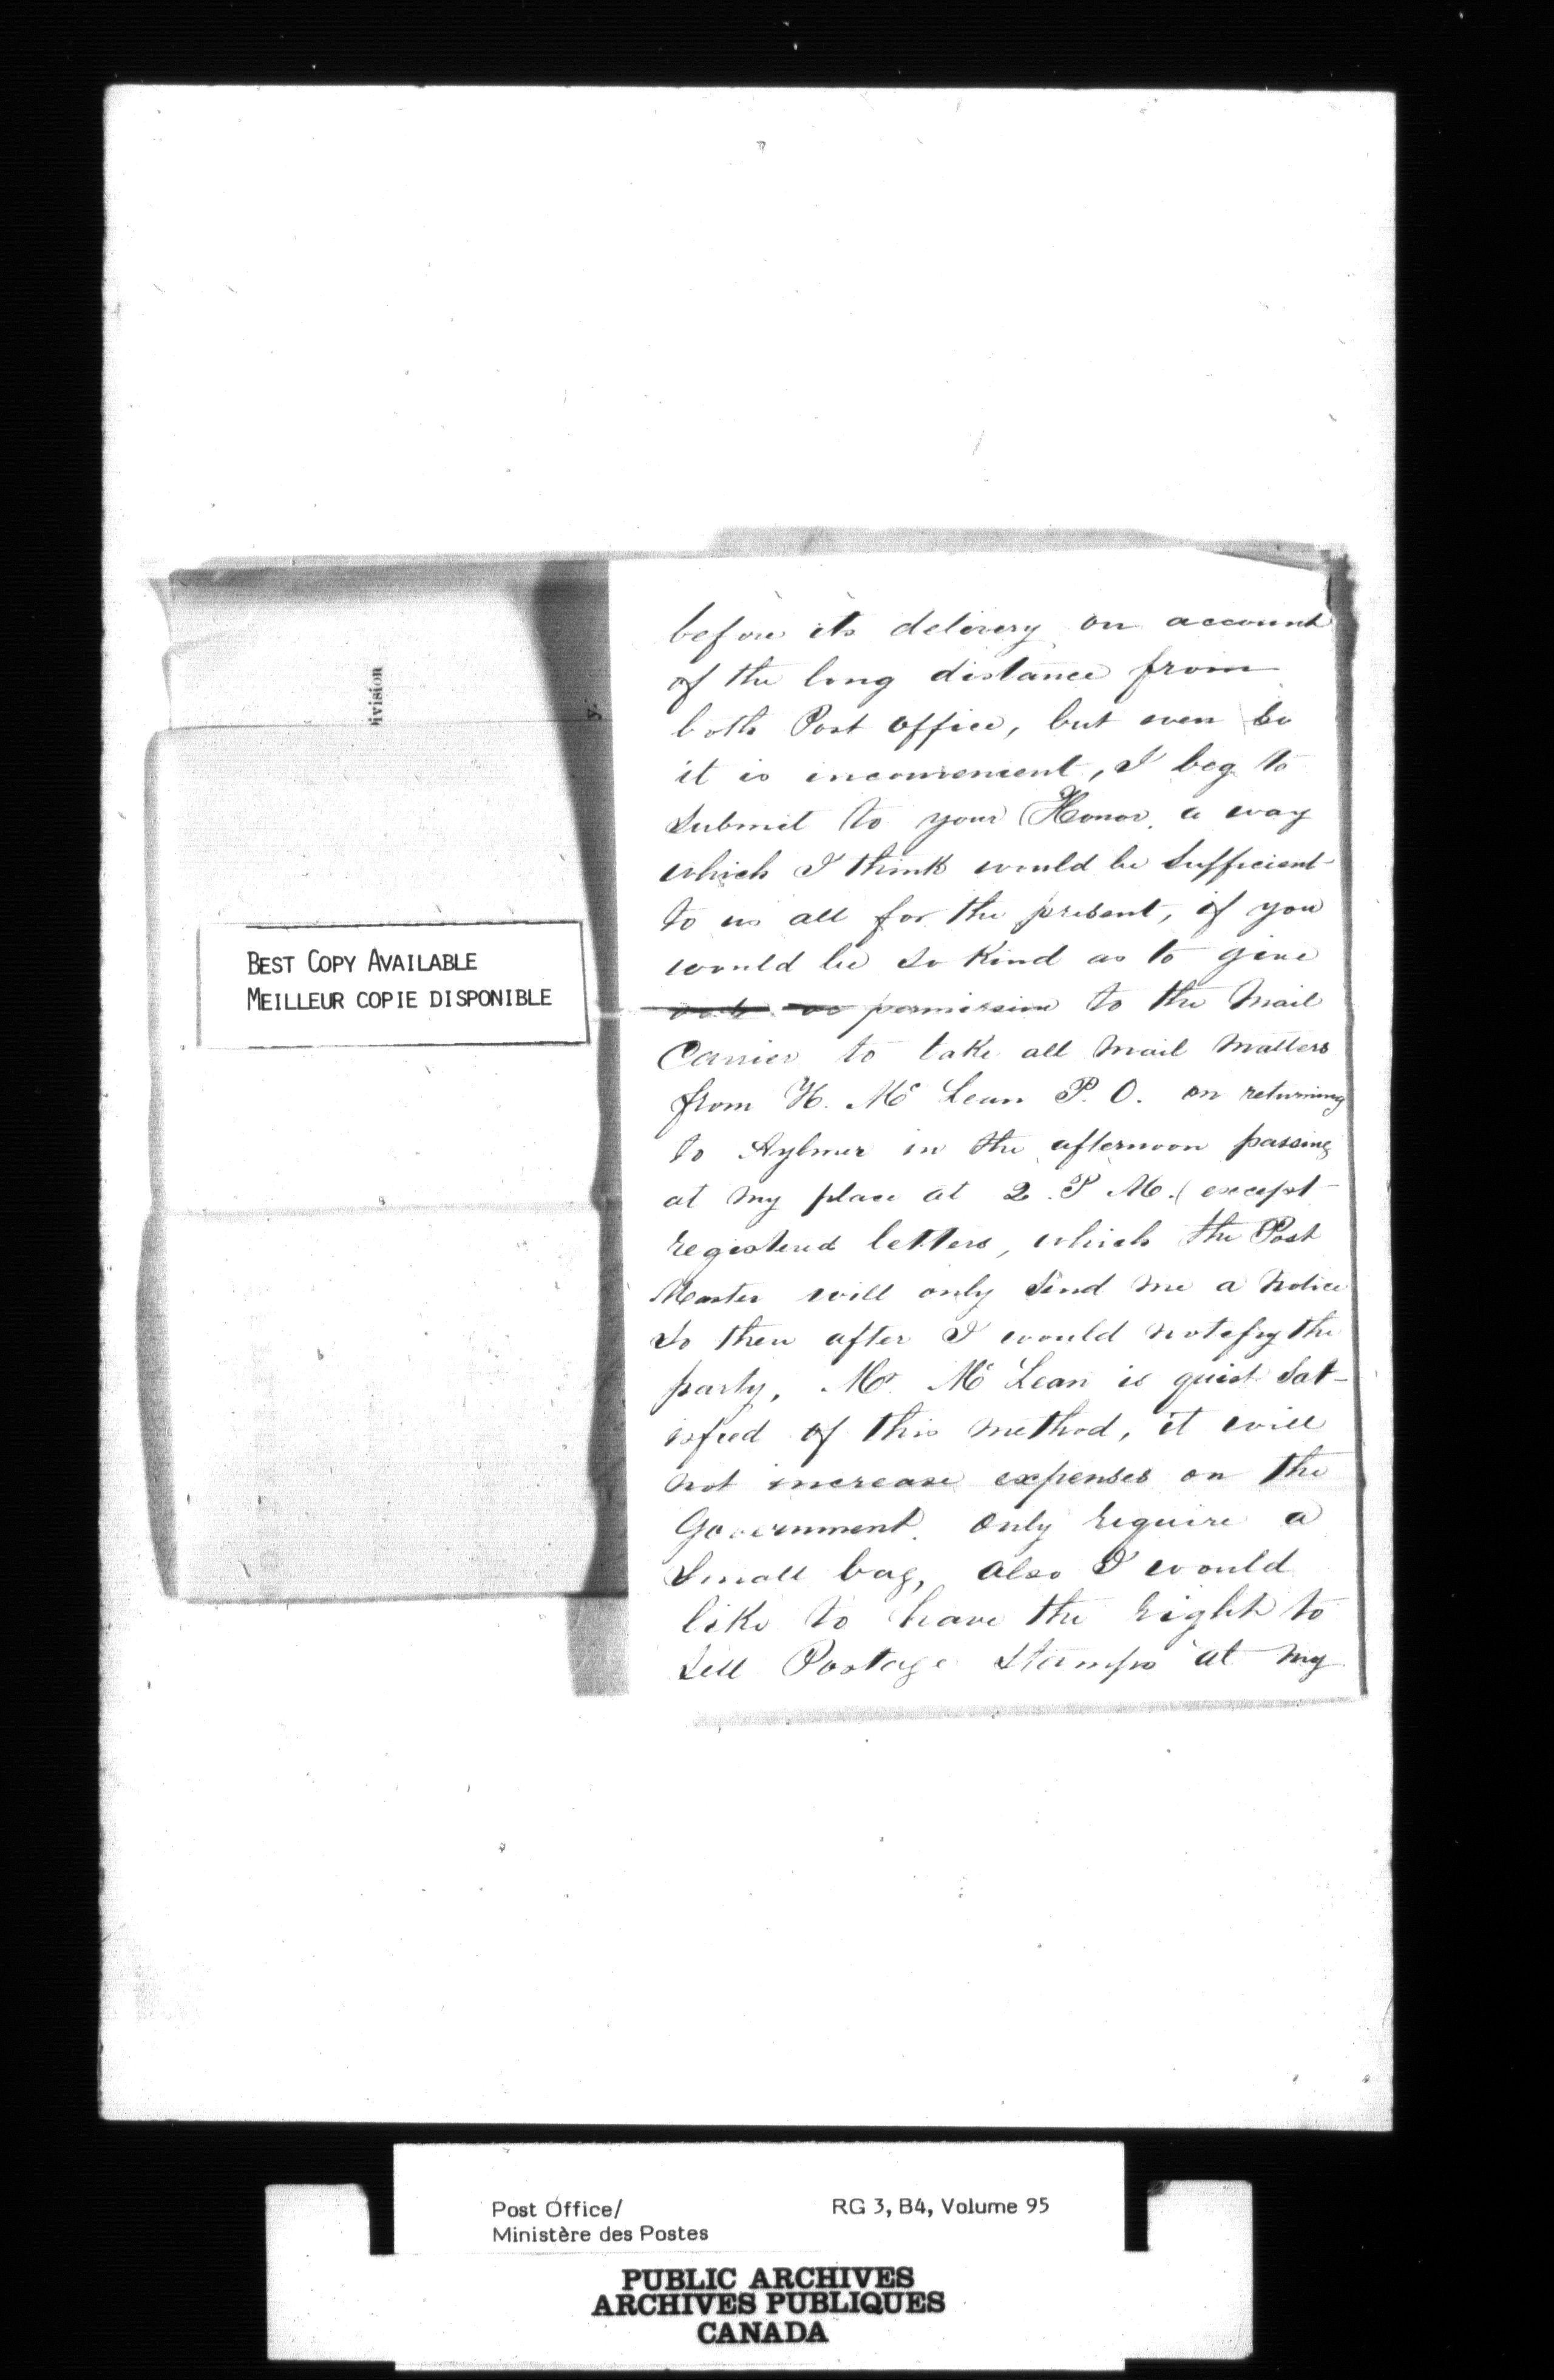 before its delivery on account
of the long distance from
both Post office, but even so
it is inconvenient, I beg to
submit to your Honor a way
which I think would be sufficient
to us all for the present, if you
would be so Kind as to give
permission to the Mail
Carrier to take all mail matters
from H. Mc Lean P. O. on returning
to Aylmer in the afternoon passing
at my place at 2 P M. (except
registered letters, which the Post
Master will only send me a notice
so then after I would notefy the
party, Mr Mc Lean is quiet sat-
isfied of this method, it will
not increase expenses on the
Government only require a
Small bag, also I would
like to have the right to
sell Postage Stamps at my
ivision
y.
BEST COPY AVAILABLE
MEILLEUR COPIE DISPONIBLE
Post Office/
Ministère des Postes
RG 3, B4, Volume 95
PUBLIC ARCHIVES
ARCHIVES PUBLIQUES
CANADA